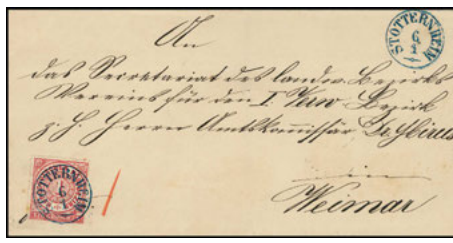 STOTTERNHEIM
6
1
An
das Secretariat des landw. Bezirks
Vereins für den I Verw Bezirk
z. H. Herrn Amtskommissär Dr
in
Weimar
STOTTERNHEIM
6
1